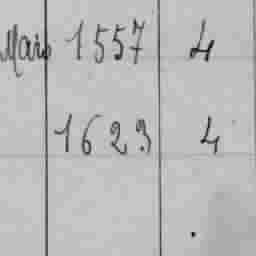 Mars 1557 4
1623 4